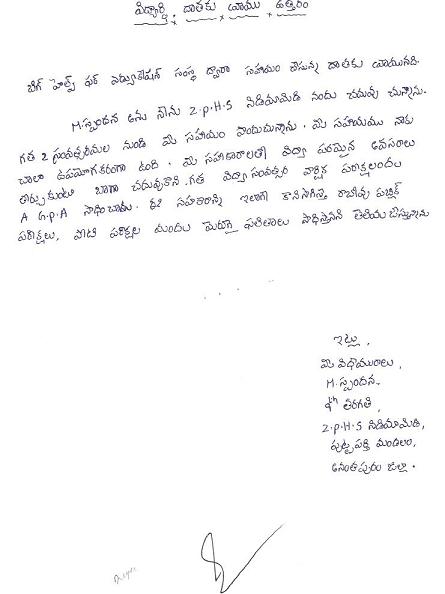 విద్యార్థి దాతకు వ్రాయు ఉత్తరం
బిగ్ హెల్ప్ ఫర్ ఎడ్యుకేషన్ సంస్థ ద్వారా సహాయం చేస్తున్న దాతకు వ్రాయునది.
M.స్పందన అను నేను Z.P.H.S నిడిమామిడి నందు చదువు చున్నాను.
గత 2 సంవత్సరముల నుండి మీ సహాయం పొందుచున్నాను. మీ సహాయము నాకు
చాలా ఉపయోగకరంగా ఉంది. మీ సహకారాలతో విద్యా పరమైన అవసరాలు
తీర్చుకుంటూ బాగా చదువుకొని. గత విద్యా సంవత్సర వార్షిక పరీక్షలందు
A G.P.A సాధించాను. ఈ సహకారాన్ని ఇలాగే కొనసాగిస్తే రాబోవు పబ్లిక్
పరీక్షలు, పోటీ పరీక్షల యందు మెరుగై ఫలితాలు సాధిస్తానని తెలియచేస్తున్నాను
ఇట్లు,
మీ విధేయురాలు,
M.స్పందన
9th తరగతి,
Z.P.H.S నిడిమామిడి,
పుట్టపర్తి మండలం,
అనంతపురం జిల్లా.